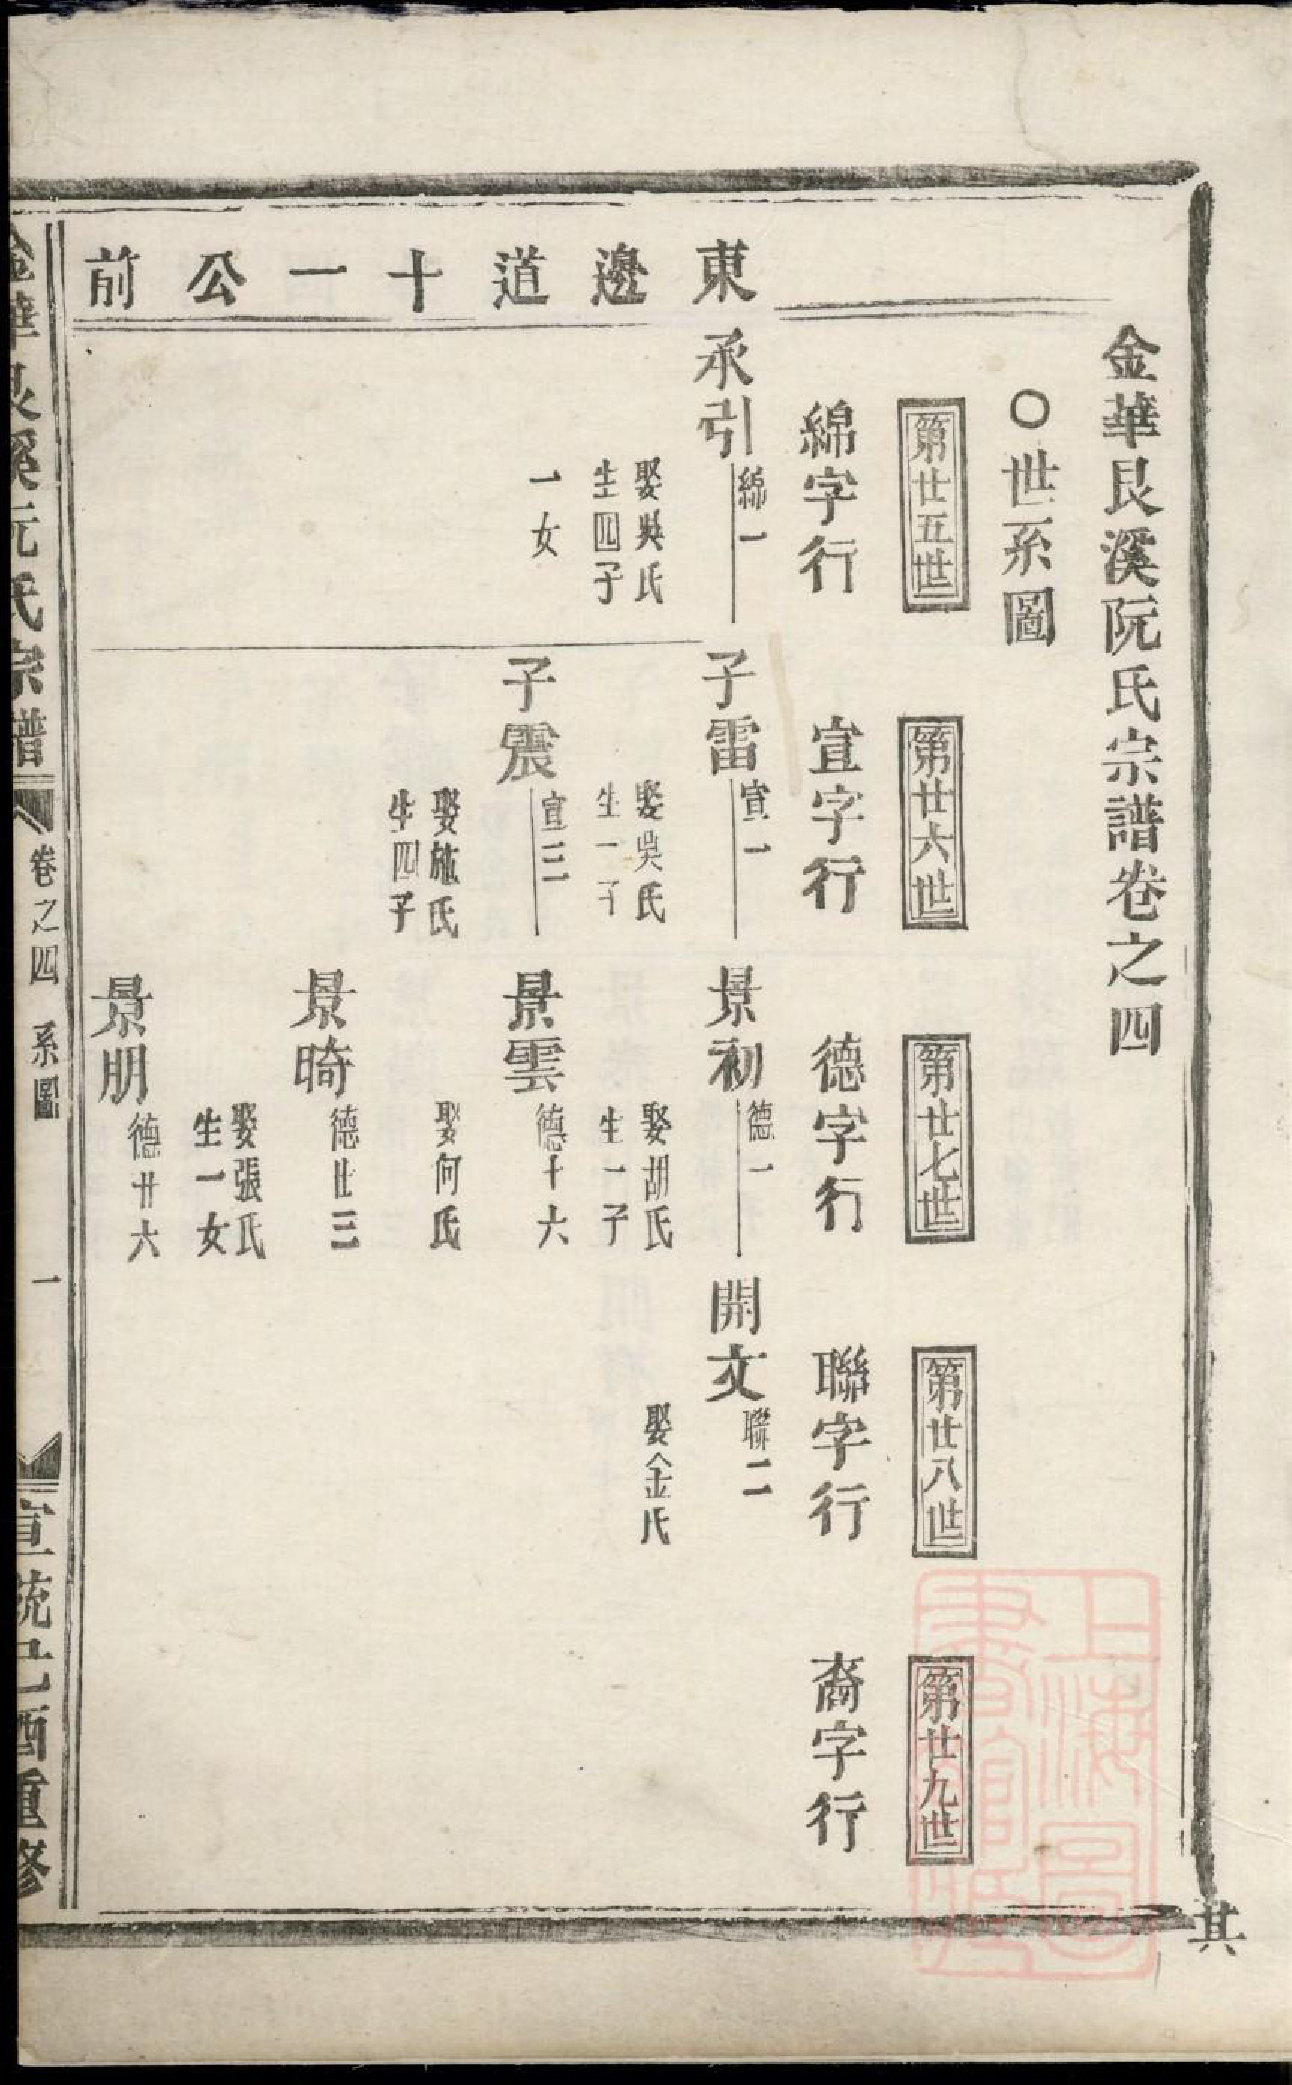 金華艮溪阮氏宗譜卷之四
〇世系圖
第廿五世
第廿六世
第廿七世
第廿八世
第廿九世
綿字行
宣字行
德字行
聯字行
裔字行
東邊道十一公前
承引
綿一
娶吳氏
生四子
一女
子雷
宣一
娶吳氏
生一子
景初
德一
娶胡氏
生一子
開文
聯二
娶金氏
子震
宣三
娶施氏
生四子
景雲
德十六
娶何氏
景暘
德廿三
娶張氏
生一女
景朋
德廿六
金華艮溪阮氏宗譜
卷之四
系圖
一
宣統己酉重修
其
上海圖書館藏